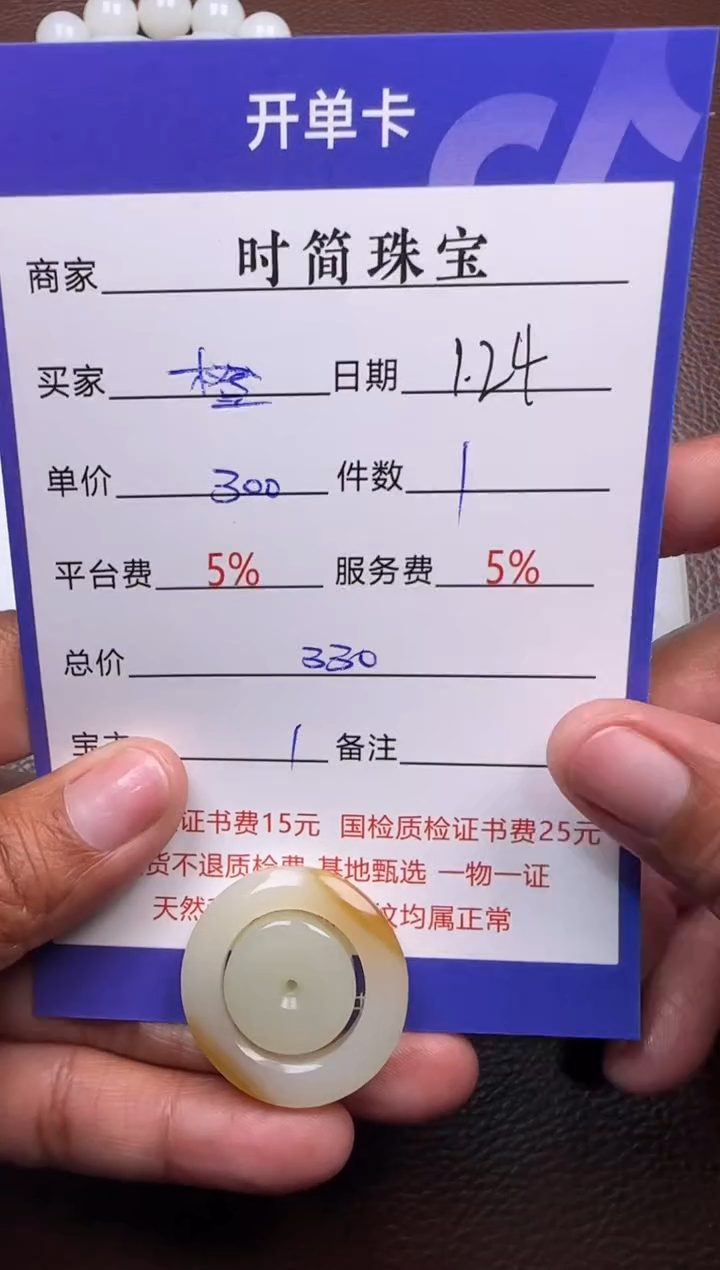 开单卡
商家 时简珠宝
买家 橙 日期 1.24
单价 300 件数 1
平台费 5% 服务费 5%
总价 330
宝 1 备注
证书费15元 国检质检证书费25元
货不退质检费 基地甄选 一物一证
天然 纹均属正常